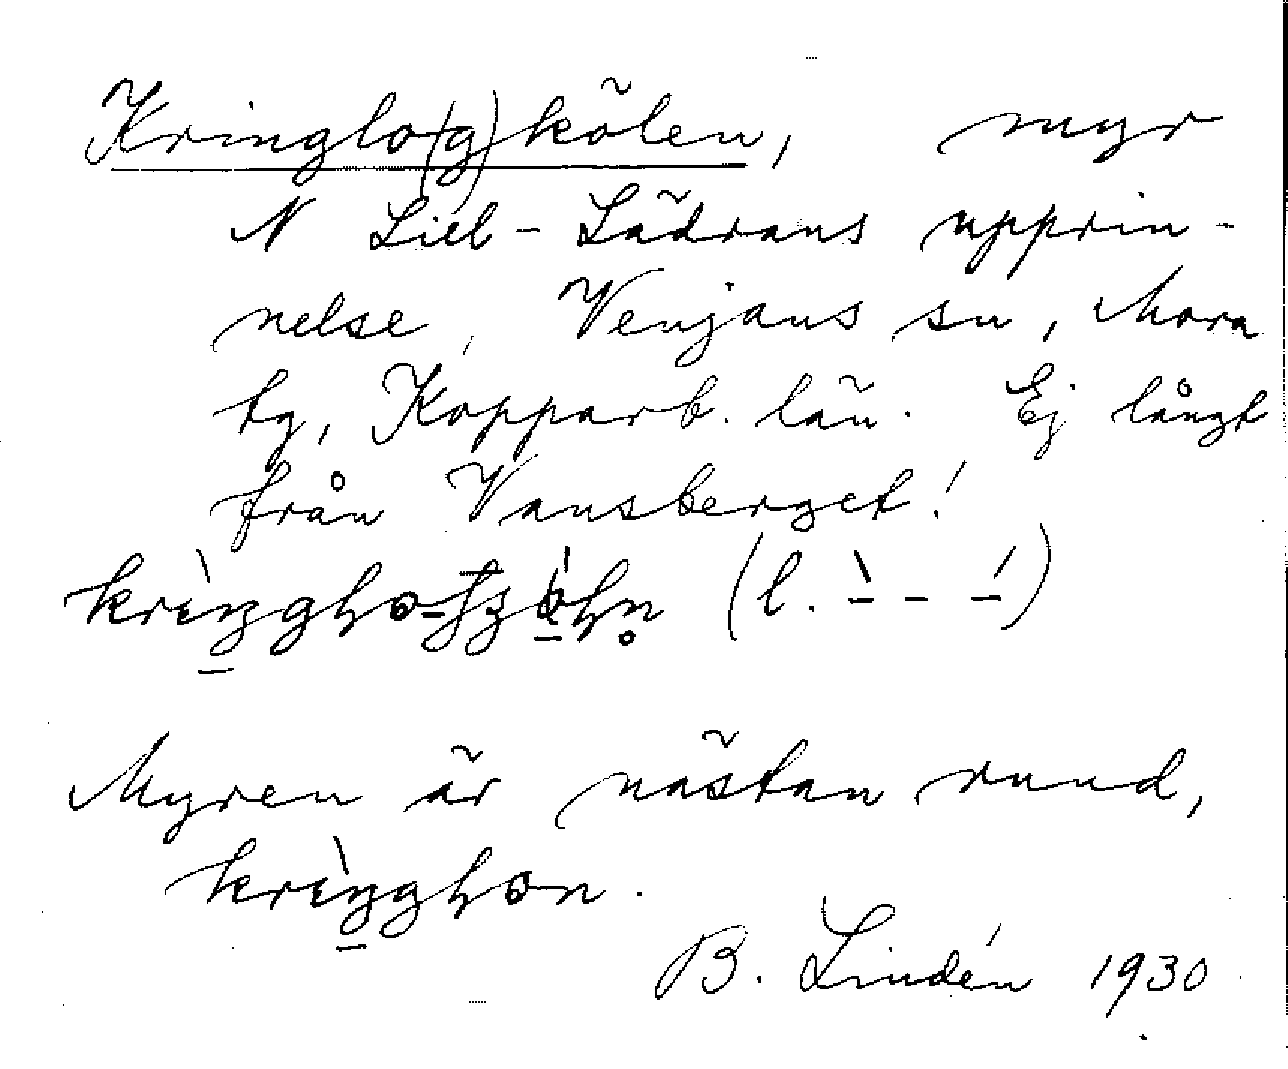 Kringlo(g)kölen, myr
N Lill-Lädrans upprin-
nelse, Venjans sn, Mora
tg, Kopparb. län. Ej långt
från Vansberget!
(l. `- - -´)
Myren är nästan rund,
B. Lindén 1930